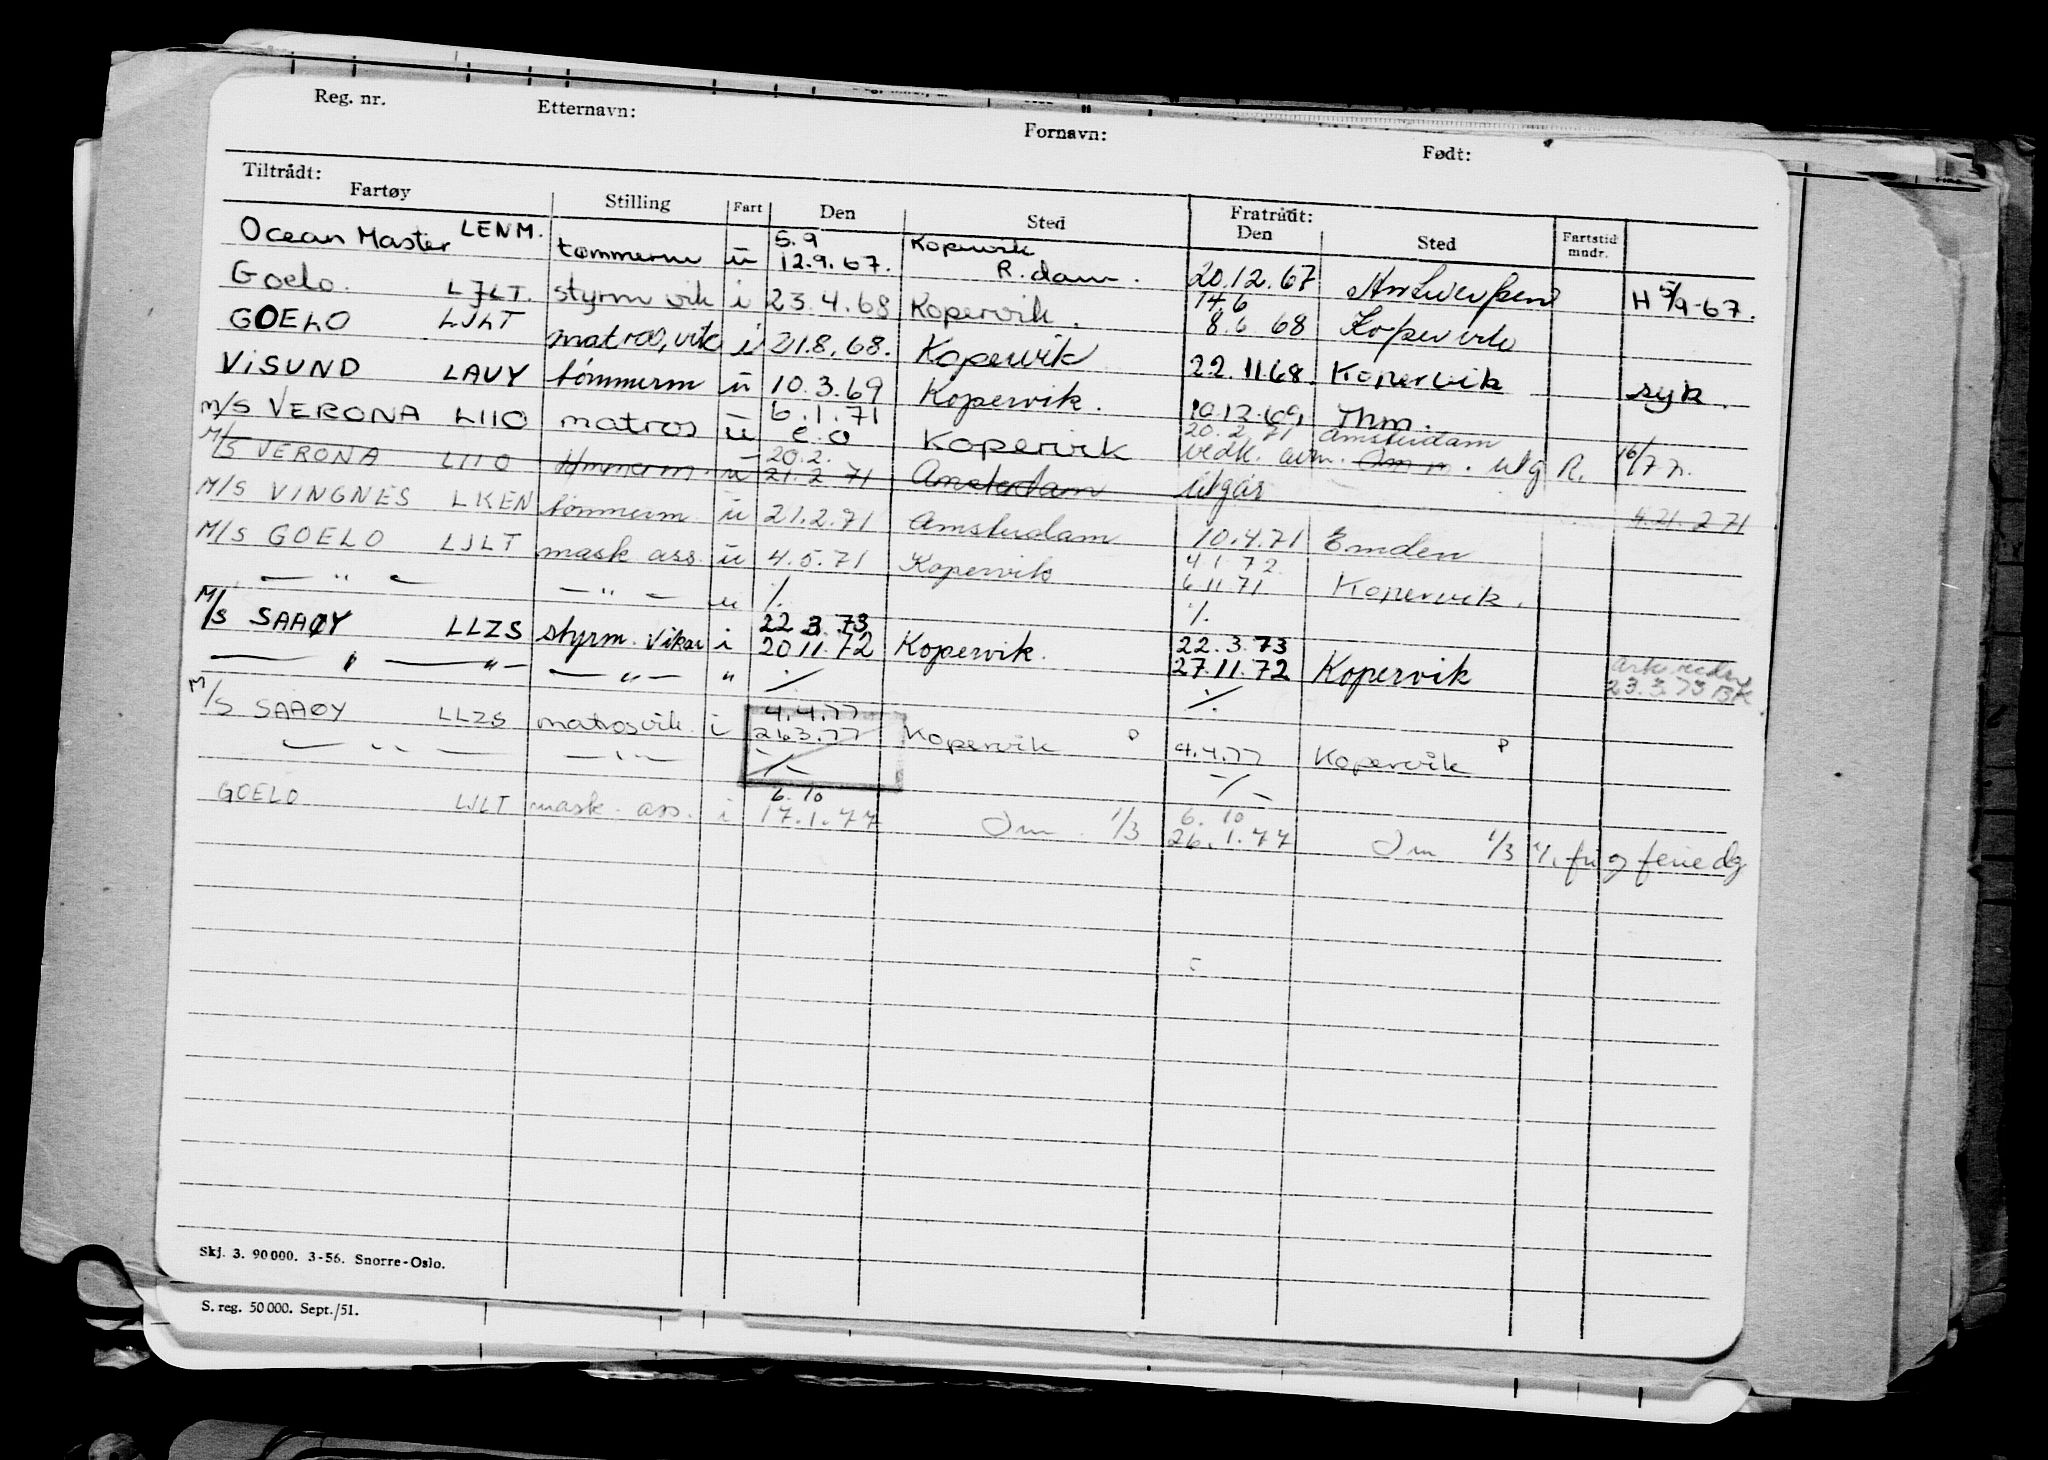 Reg. nr. Etternavn: Fornavn: Født:
Tiltrådt: Fratrådt:
Fartøy Stilling Fart Den Sted Den Sted Fartstid mndr.
Ocean Master LENM. tømmerm u 5.9 12.9.67. Kopervik R.dam. 20.12.67 Antwerpen H 5/9-67.
Goelo. LJLT. styrm vik i 23.4.68 Kopervik. 14.6 8.6 68 Kopervik
GOELO LJLT matros, vik i 21.8.68. Kopervik 22.11.68. Kopervik syk.
VISUND LAUY tømmerm u 10.3.69 Kopervik. 10.12.69, Thm.
M/S VERONA LIIO matros u 6.1.71 e.o Kopervik 20.2.71 Amsterdam vedk. avm. utg R. 16/7 72.
M/S VERONA LIIO tømmerm u 20.2. 21.2 71 Amsterdam utgår 4.21.2 71
M/S VINGNES LKEN tømmerm u 21.2.71 Amsterdam 10.4.71 Emden
M/S GOELO LJLT mask ass. u 4.5.71 Kopervik 4 1 72. 6 11 71. Kopervik.
— " — — " — u ./. ./.
M/S SAAØY LLZS styrm. Vikar i 22 3.73 20 11. 72 Kopervik. 22.3.73 27.11.72 Kopervik 23.3.73 BK.
— " — " — — " — " ./. ./.
M/S SAAØY LLZS matrosvik. i 4.4.77 26.3.77 Kopervik P 4.4.77 Kopervik P
— " — — " — -/- -/-
GOELO LJLT mask. ass. i 6. 10 17.1.77 Inn. 1/3 6. 10 26.1.77 Inn 1/3 %. fri og feriedg
Skj. 3. 90000. 3-56. Snorre-Oslo.
S. reg. 50000. Sept./51.